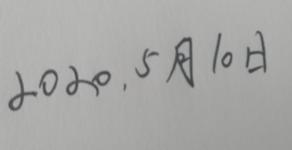 2020.5月10日